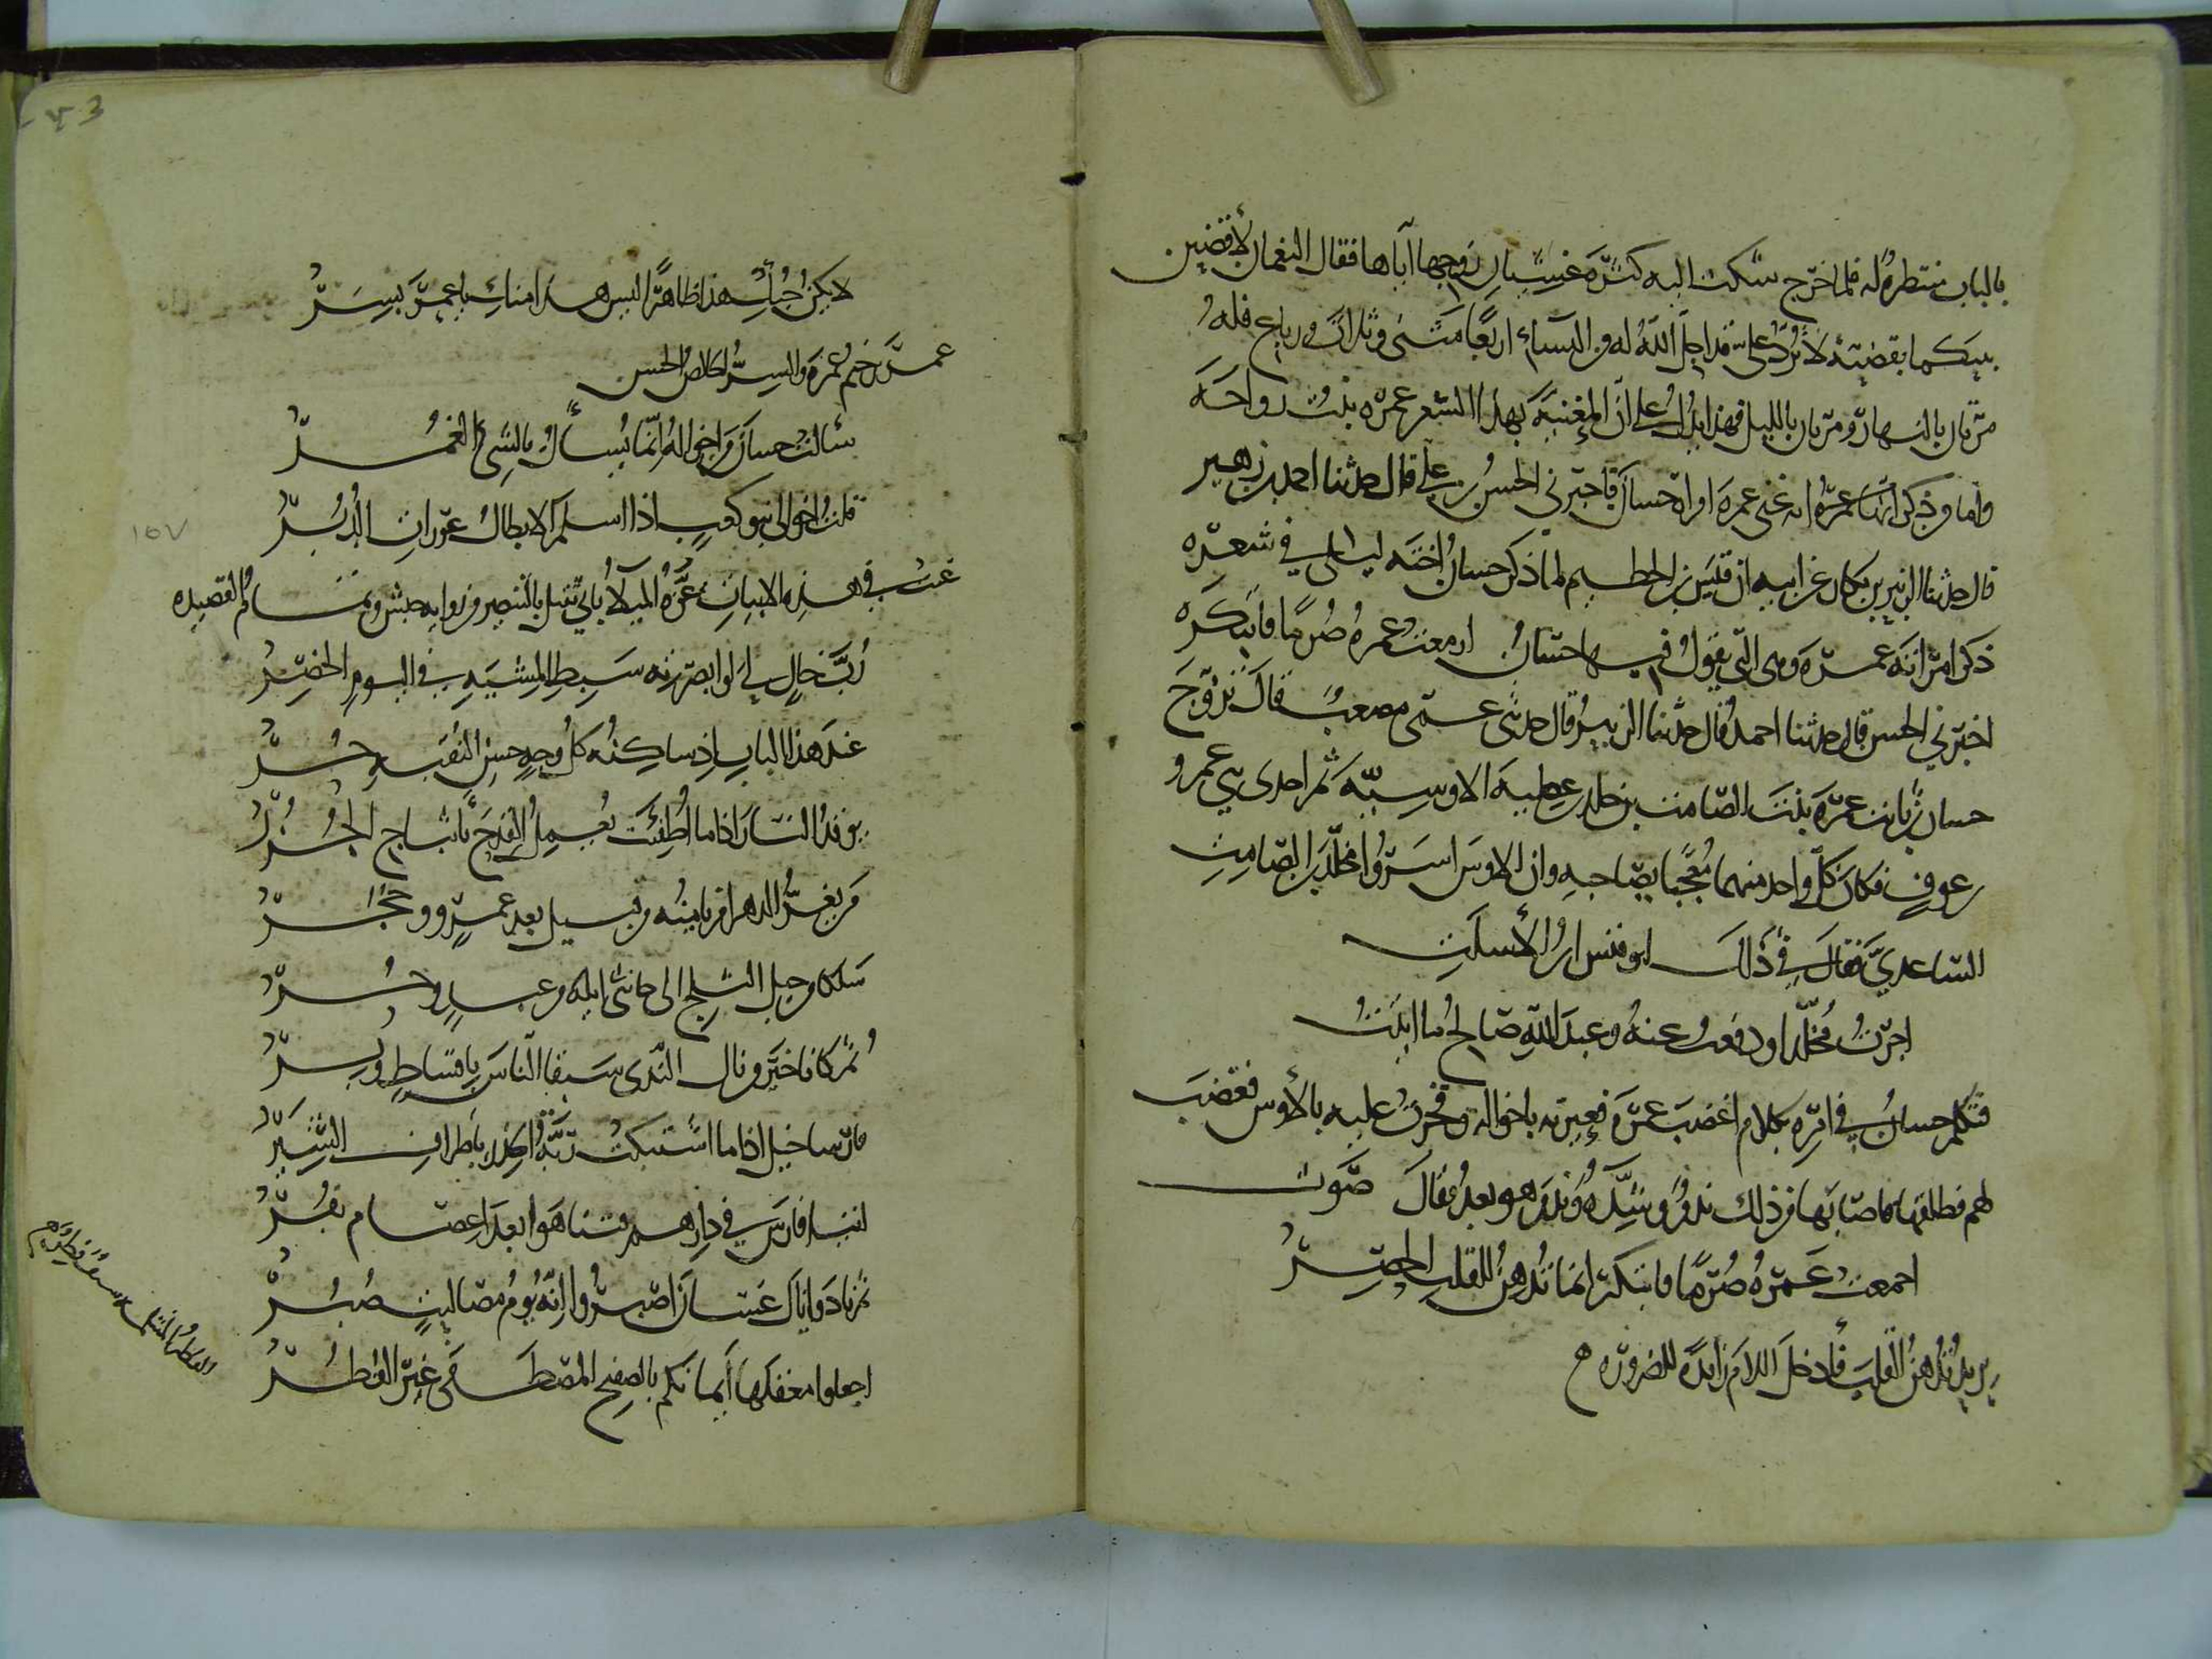 بالباب منتظرة له فلما خرج شكت اليه كثرة غشيان زوجها اياها فقال النعمان لأقضين
بينكما بقضية لا ترد على قد احل الله له من النساء اربعا مثنى وثلاث ورباع فله
مرتان بالنهار ومرتان بالليل فهذا يدل على ان المغنية بهذا الشعر عمرة بنت رواحة
واما من ذكر انها عمرة اخرى غير عمرة امراة حسان فاخبرني الحسن بن علي قال حدثنا احمد بن زهير
قال حدثنا الزبير بن بكار عن ابيه ان قيس بن الخطيم لما ذكر حسان اخته ليلى في شعره
ذكر امراته عمرة وهى التي يقول فيها حسان ازمعت عمرة صرما فابتكر
اخبرني الحسن قال حدثنا احمد قال حدثنا الزبير قال حدثني عمى مصعب قال تزوج
حسان بن ثابت عمرة بنت الصامت بن خلد بن عطية الاوسية ثم احدى بني عمرو
بن عوف فكان كل واحد منهما معجبا بصاحبه وان الاوس اسروا مخلد بن الصامت
الساعدي فقال في ذلك ابو قيس بن الأسلت
اجرت مخلدا ودفعت عنه وعند الله صالح ما اتيت
فتكلم حسان في امره بكلام اغضب عمرة فعيرته باخواله وفخرت عليه بالأوس فغضب
لهم فطلقها فاصابها من ذلك ندم وشدة وندم هو بعد فقال صوت
اجمعت عمرة صرما فابتكر انما تدهن للقلب الحصر
يريد تدهن القلب فأدخل اللام زائدة للضرورة
لا يكن حبك هذا ظاهرا ليس هذا منك يا عمر بسر
عمر ترخيم عمرة والسر الخالص الحسن
سألت حسان من اخواله انما يسأل بالشيء الغمر
قلت اخوالي بنو كعب اذا اسلم الابطال عورات الدبر
غنت في هذه الابيات عزة الميلاء ثاني ثقيل بالبنصر من رواية حبش وتمام القصيدة
رب خال لي لو ابصرته سبط المشية في اليوم الخصر
عند هذا الباب اذ ساكنه كل وجه حسن النقبة حر
يوقد النار اذا ما اطفئت يعمل القدر باثباج الجزر
من يغر الدهر او يامنه من قبيل بعد عمرو وحجر
ملكا من جبل الثلج الى جانبي ايلة من عبد وحر
ثم كانا خير من نال الندى سبقا الناس باقساط وبر
فارسا خيل اذا ما امسكت ربة الخدر باطراف الستر
اتيا فارس في دارهم فتناهوا بعد اعصام بقر
ثم نادوا يال غسان اصبروا انه يوم مصاليت صبر
اجعلوا معقلها أيمانكم بالصفيح المصطفى غير الفطر
١٥٧